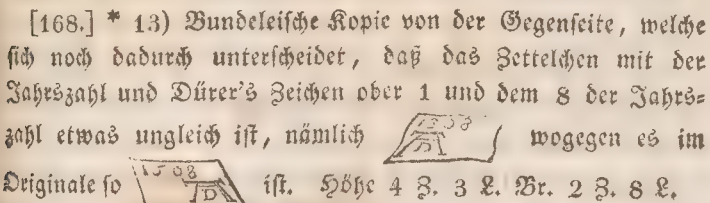 [168.] * 13) Bundeleische Kopie von der Gegenseite, welche
sich noch dadurch unterscheidet, daß das Zettelchen mit der
Jahrszahl und Dürer's Zeichen ober 1 und dem 8 der Jahrs-
zahl etwas ungleich ist, nämlich 1508 wogegen es im
Originale so 1508 D ist. Höhe 4 Z. 3 L. Br. 2 Z. 8 L.